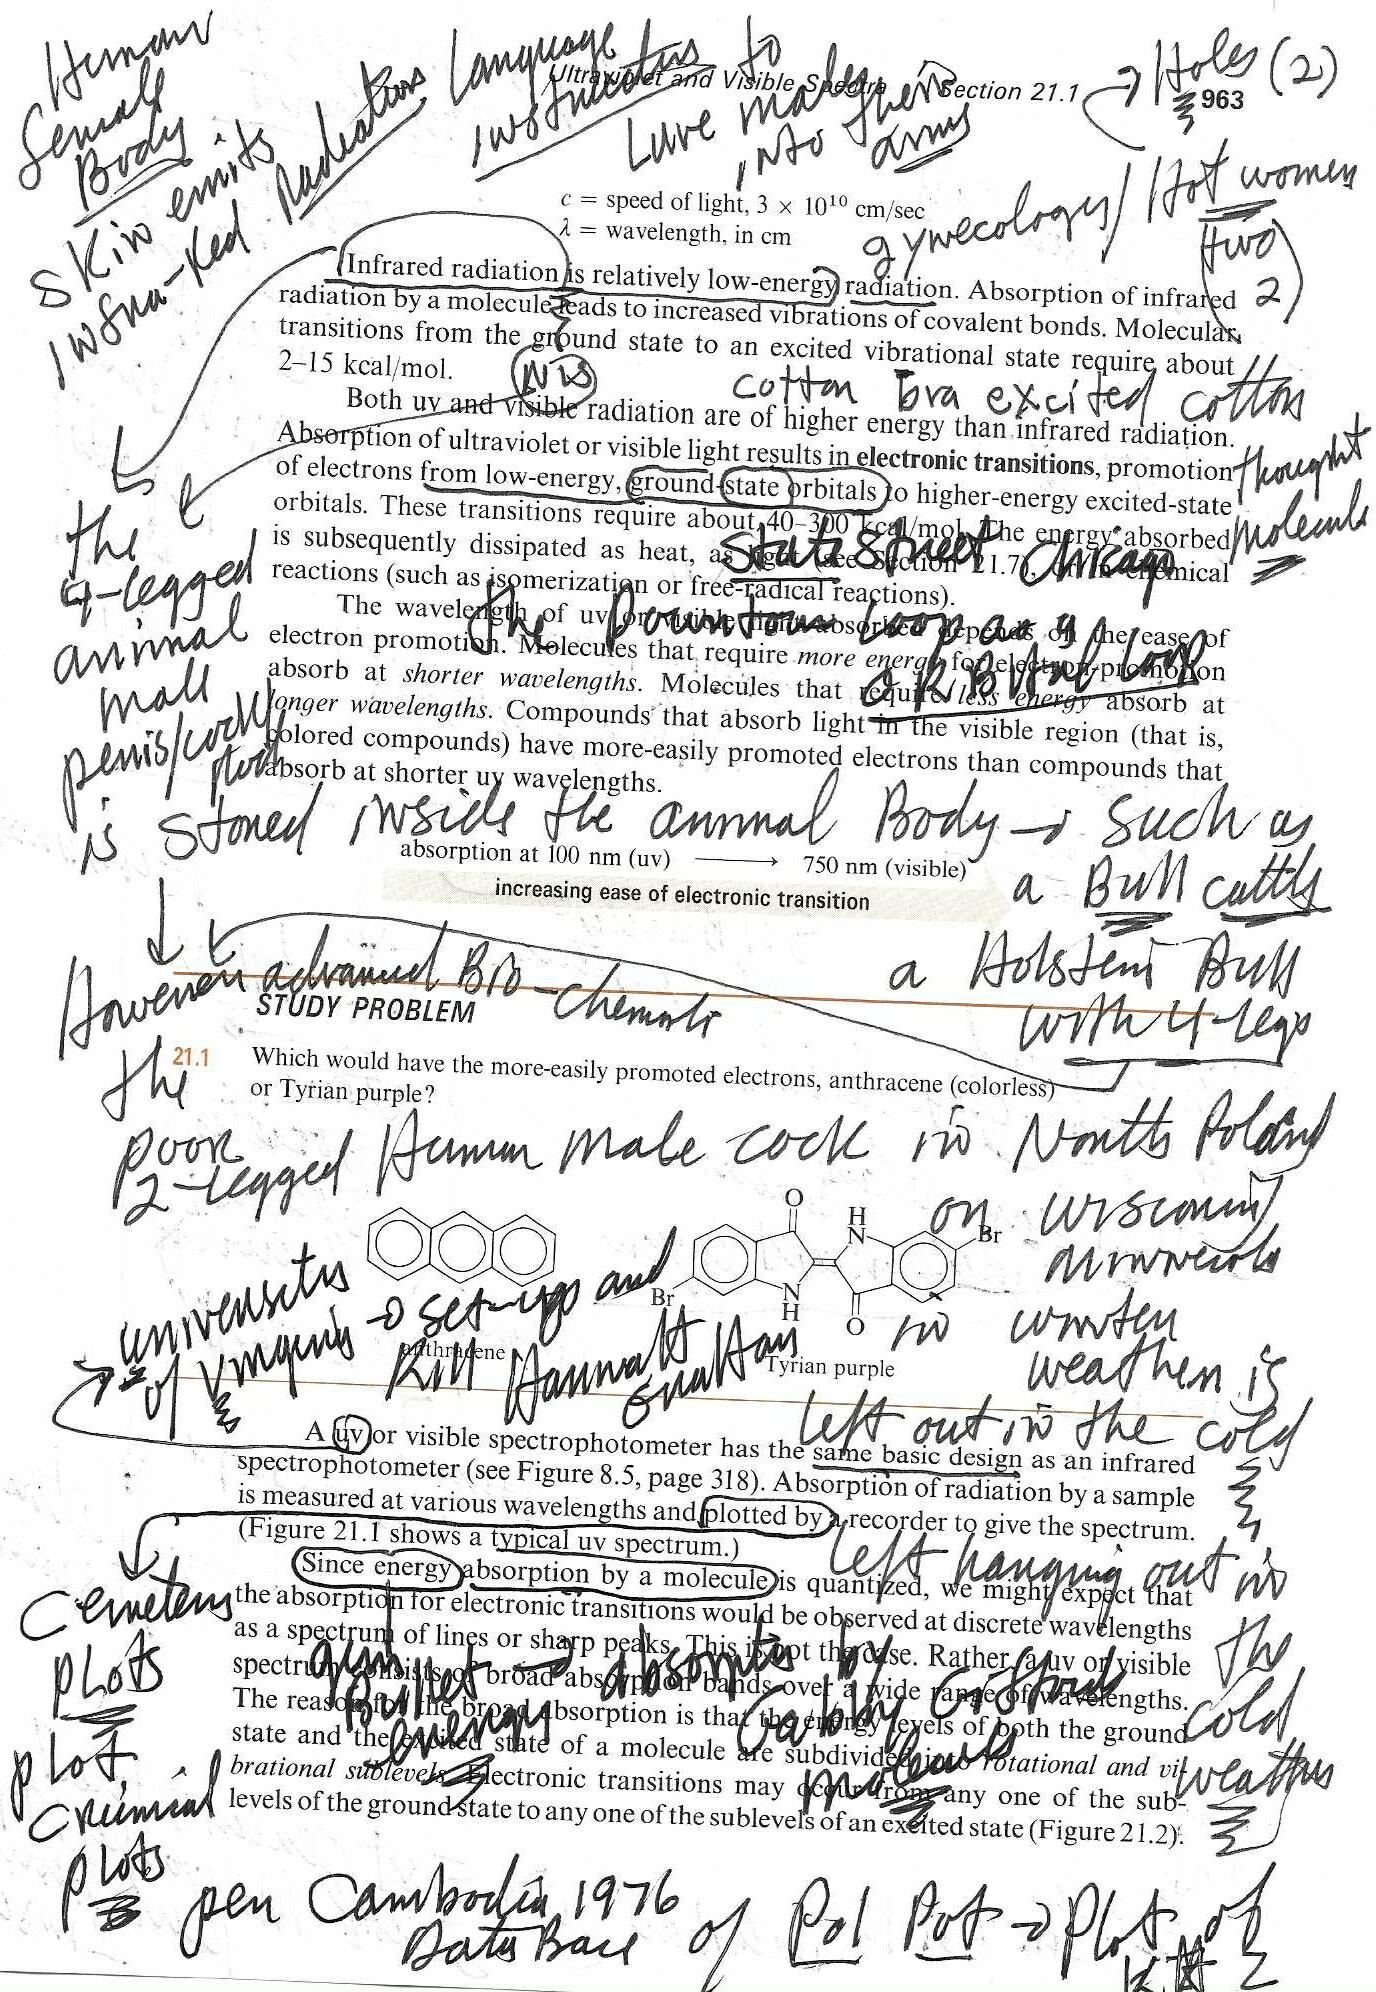 Human
Female
Body
Skin emits
infra-Red Radiation
language
instructs to
Lure males
into their
arms
Ultraviolet and Visible Spectra Section 21.1
963
Holes (2)
c = speed of light, 3 × 10¹⁰ cm/sec
λ = wavelength, in cm
gynecologes/ Hot women
(two
2)
Infrared radiation is relatively low-energy radiation. Absorption of infrared
radiation by a molecule leads to increased vibrations of covalent bonds. Molecular
transitions from the ground state to an excited vibrational state require about
2–15 kcal/mol.
cotton bra excited cotton
thought
molecule
Both uv and visible radiation are of higher energy than infrared radiation.
Absorption of ultraviolet or visible light results in electronic transitions, promotion
of electrons from low-energy, ground-state orbitals to higher-energy excited-state
orbitals. These transitions require about 40–300 kcal/mol. The energy absorbed
is subsequently dissipated as heat, as light (see Section 21.7), or in chemical
reactions (such as isomerization or free-radical reactions).
State Street Chicago
the Downtown Loop as a
ORBital Loop
The wavelength of uv or visible light absorbed depends on the ease of
electron promotion. Molecules that require more energy for electron-promotion
absorb at shorter wavelengths. Molecules that require less energy absorb at
longer wavelengths. Compounds that absorb light in the visible region (that is,
colored compounds) have more-easily promoted electrons than compounds that
absorb at shorter uv wavelengths.
the
4-legged
animal
male
penis/cock/
is Stored inside the animal Body → such as
a Bull cattle
absorption at 100 nm (uv) ⟶ 750 nm (visible)
increasing ease of electronic transition
a Holstein Bull
with 4-legs
However advanced Bio-chemists
STUDY PROBLEM
21.1 Which would have the more-easily promoted electrons, anthracene (colorless)
or Tyrian purple?
the
poor
2-legged Human male cock in North Poland
or Wisconsin/
Minnesota
in winter
weather is
left out in the cold
O
H
N
Br
Br
N
H
O
anthracene
Tyrian purple
University
of Virginia → set-up and
Kill Hannah
Graham
A uv or visible spectrophotometer has the same basic design as an infrared
spectrophotometer (see Figure 8.5, page 318). Absorption of radiation by a sample
is measured at various wavelengths and plotted by a recorder to give the spectrum.
(Figure 21.1 shows a typical uv spectrum.)
left hanging out in
the
cold
weather
Since energy absorption by a molecule is quantized, we might expect that
the absorption for electronic transitions would be observed at discrete wavelengths
as a spectrum of lines or sharp peaks. This is not the case. Rather, a uv or visible
spectrum consists of broad absorption bands over a wide range of wavelengths.
The reason for the broad absorption is that the energy levels of both the ground
state and the excited state of a molecule are subdivided into rotational and vi-
brational sublevels. Electronic transitions may occur from any one of the sub-
levels of the ground state to any one of the sublevels of an excited state (Figure 21.2).
Bullet → absorbed by
energy
Gabby Giffords
molecule
Cemetery
PLots
plot
Criminal
plots
per Cambodia 1976
Data Base of Pol Pot → Plot of